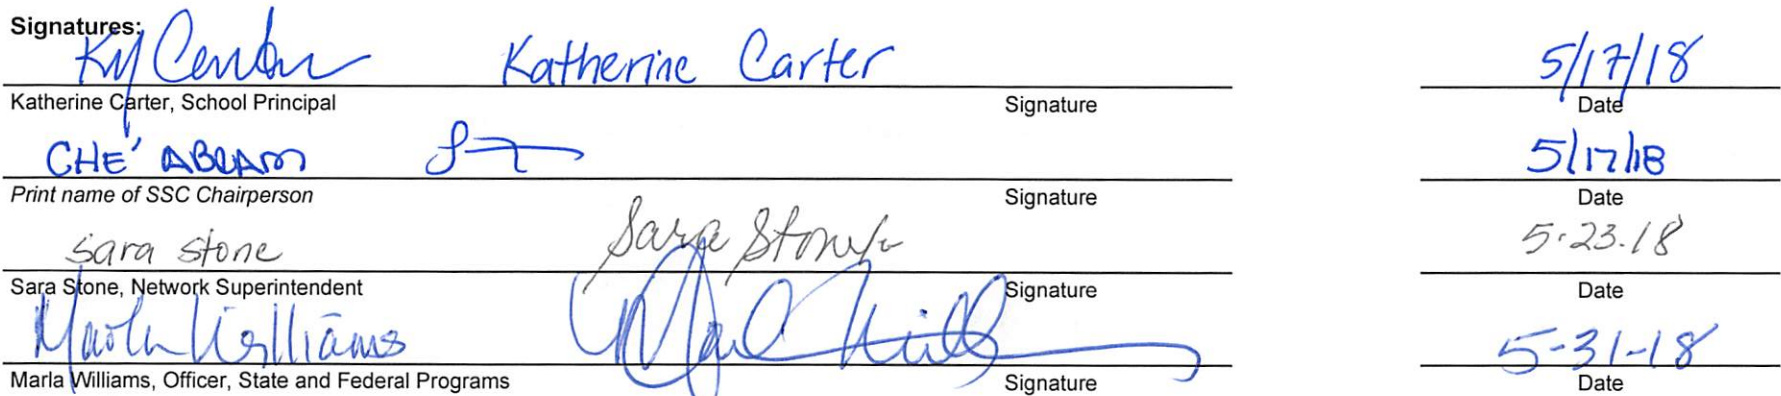 Signatures:
Katherine Carter 5/17/18
Katherine Carter, School Principal Signature Date
CHE' ABRAM 5/17/18
Print name of SSC Chairperson Signature Date
Sara Stone Sara Stone 5.23.18
Sara Stone, Network Superintendent Signature Date
Marla Williams 5-31-18
Marla Williams, Officer, State and Federal Programs Signature Date